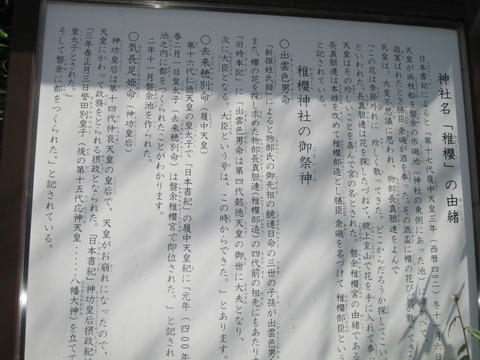 神社名「稚櫻」の由緒
日本書紀によると「第十七代履中天皇三年(西暦四〇二)冬十一月六日
天皇が両枝船を磐余の市磯池(神社の東側にあった池)に浮べて
遊宴されたとき膳臣 余磯が酒を奉り、その酒盃に櫻の花びらが散って
天皇は、大変不思議に思われ、物部長真胆連をよんで
「この花は季節外れに珍しく散ってきた。どこからだろうか探してこい。
といわれた。長真胆連は花を探したづねて、掖上室山で花を手に入れて
天皇はその珍しいことを喜んで宮の名とされた。磐余稚櫻宮の由緒である
長真胆連は本姓を改めて稚櫻部造とし膳臣 余磯を名づけて 稚櫻部臣とい
と記されている。
稚櫻神社の御祭神
〇出雲色男命
「新撰姓氏録」によると物部氏の御先祖の饒速日命の三世の子孫が出雲色男
また、櫻の花を探し求めた物部長真胆連(稚櫻部造)の四代前の祖先にもあたり
「旧時本記」に「出雲色男命は第四代懿徳天皇の御世に大夫となり、
次に大臣となる。大臣という号は、この時からできた。」とあります。
〇去来穂別命(履中天皇)
第十六代仁徳天皇の皇太子で「日本書紀」の履中天皇紀に「元年(四〇〇年
春二月一日皇太子(去来穂別命)は磐余稚櫻宮で即位された。」
池之内に都をつくられたことがわかります。
二年十一月磐余池を作られた。
〇気長足姫命(神功皇后)
神功皇后は第十四代仲哀天皇の皇后で、天皇がお崩れになったので、
天皇にかわって政務をとられる摂政となられた。「日本書紀」神功皇后摂政紀に
「三年春正月三日誉田別皇子(後の第十五代応神天皇・・・・・八幡大神)を立てて
皇太子とされた。
そして磐余に都をつくられた。」と記されている。